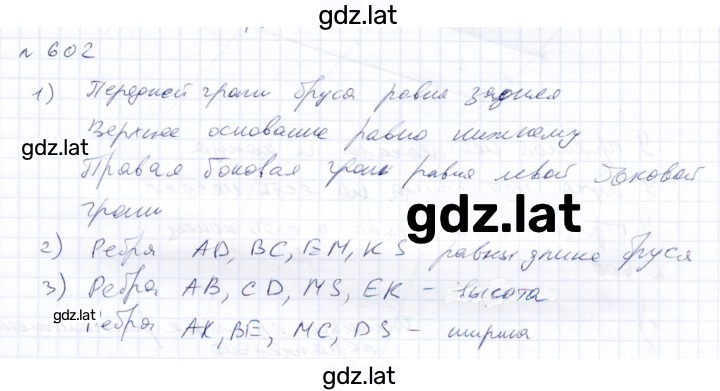 gdz.lat
№ 602
1) Передней грани бруса равна задняя
Верхнее основание равно нижнему
gdz.lat
Правая боковая грань равна левой боковой
грани
gdz.lat
2) Ребра AD, BC, EM, KS равны длине бруса
3) Ребра AB, CD, MS, EK – высота
gdz.lat
Ребра AK, BE, MC, DS – ширина
gdz.lat